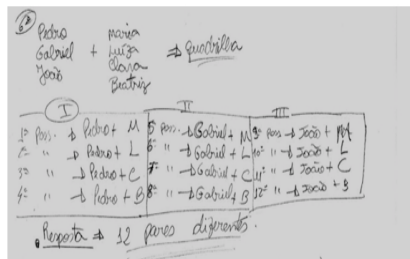 6º
Pedro Maria
Gabriel + Luíza ⇒ Quadrilha
João Clara
Beatriz
I II III
1ª Poss. → Pedro + M 5ª Poss. → Gabriel + M 9ª Poss → João + M
2ª " → Pedro + L 6ª " → Gabriel + L 10ª " → João + L
3ª " → Pedro + C 7ª " → Gabriel + C 11ª " → João + C
4ª " → Pedro + B 8ª " → Gabriel + B 12ª " → João + B
. Resposta ⇒ 12 pares diferentes.